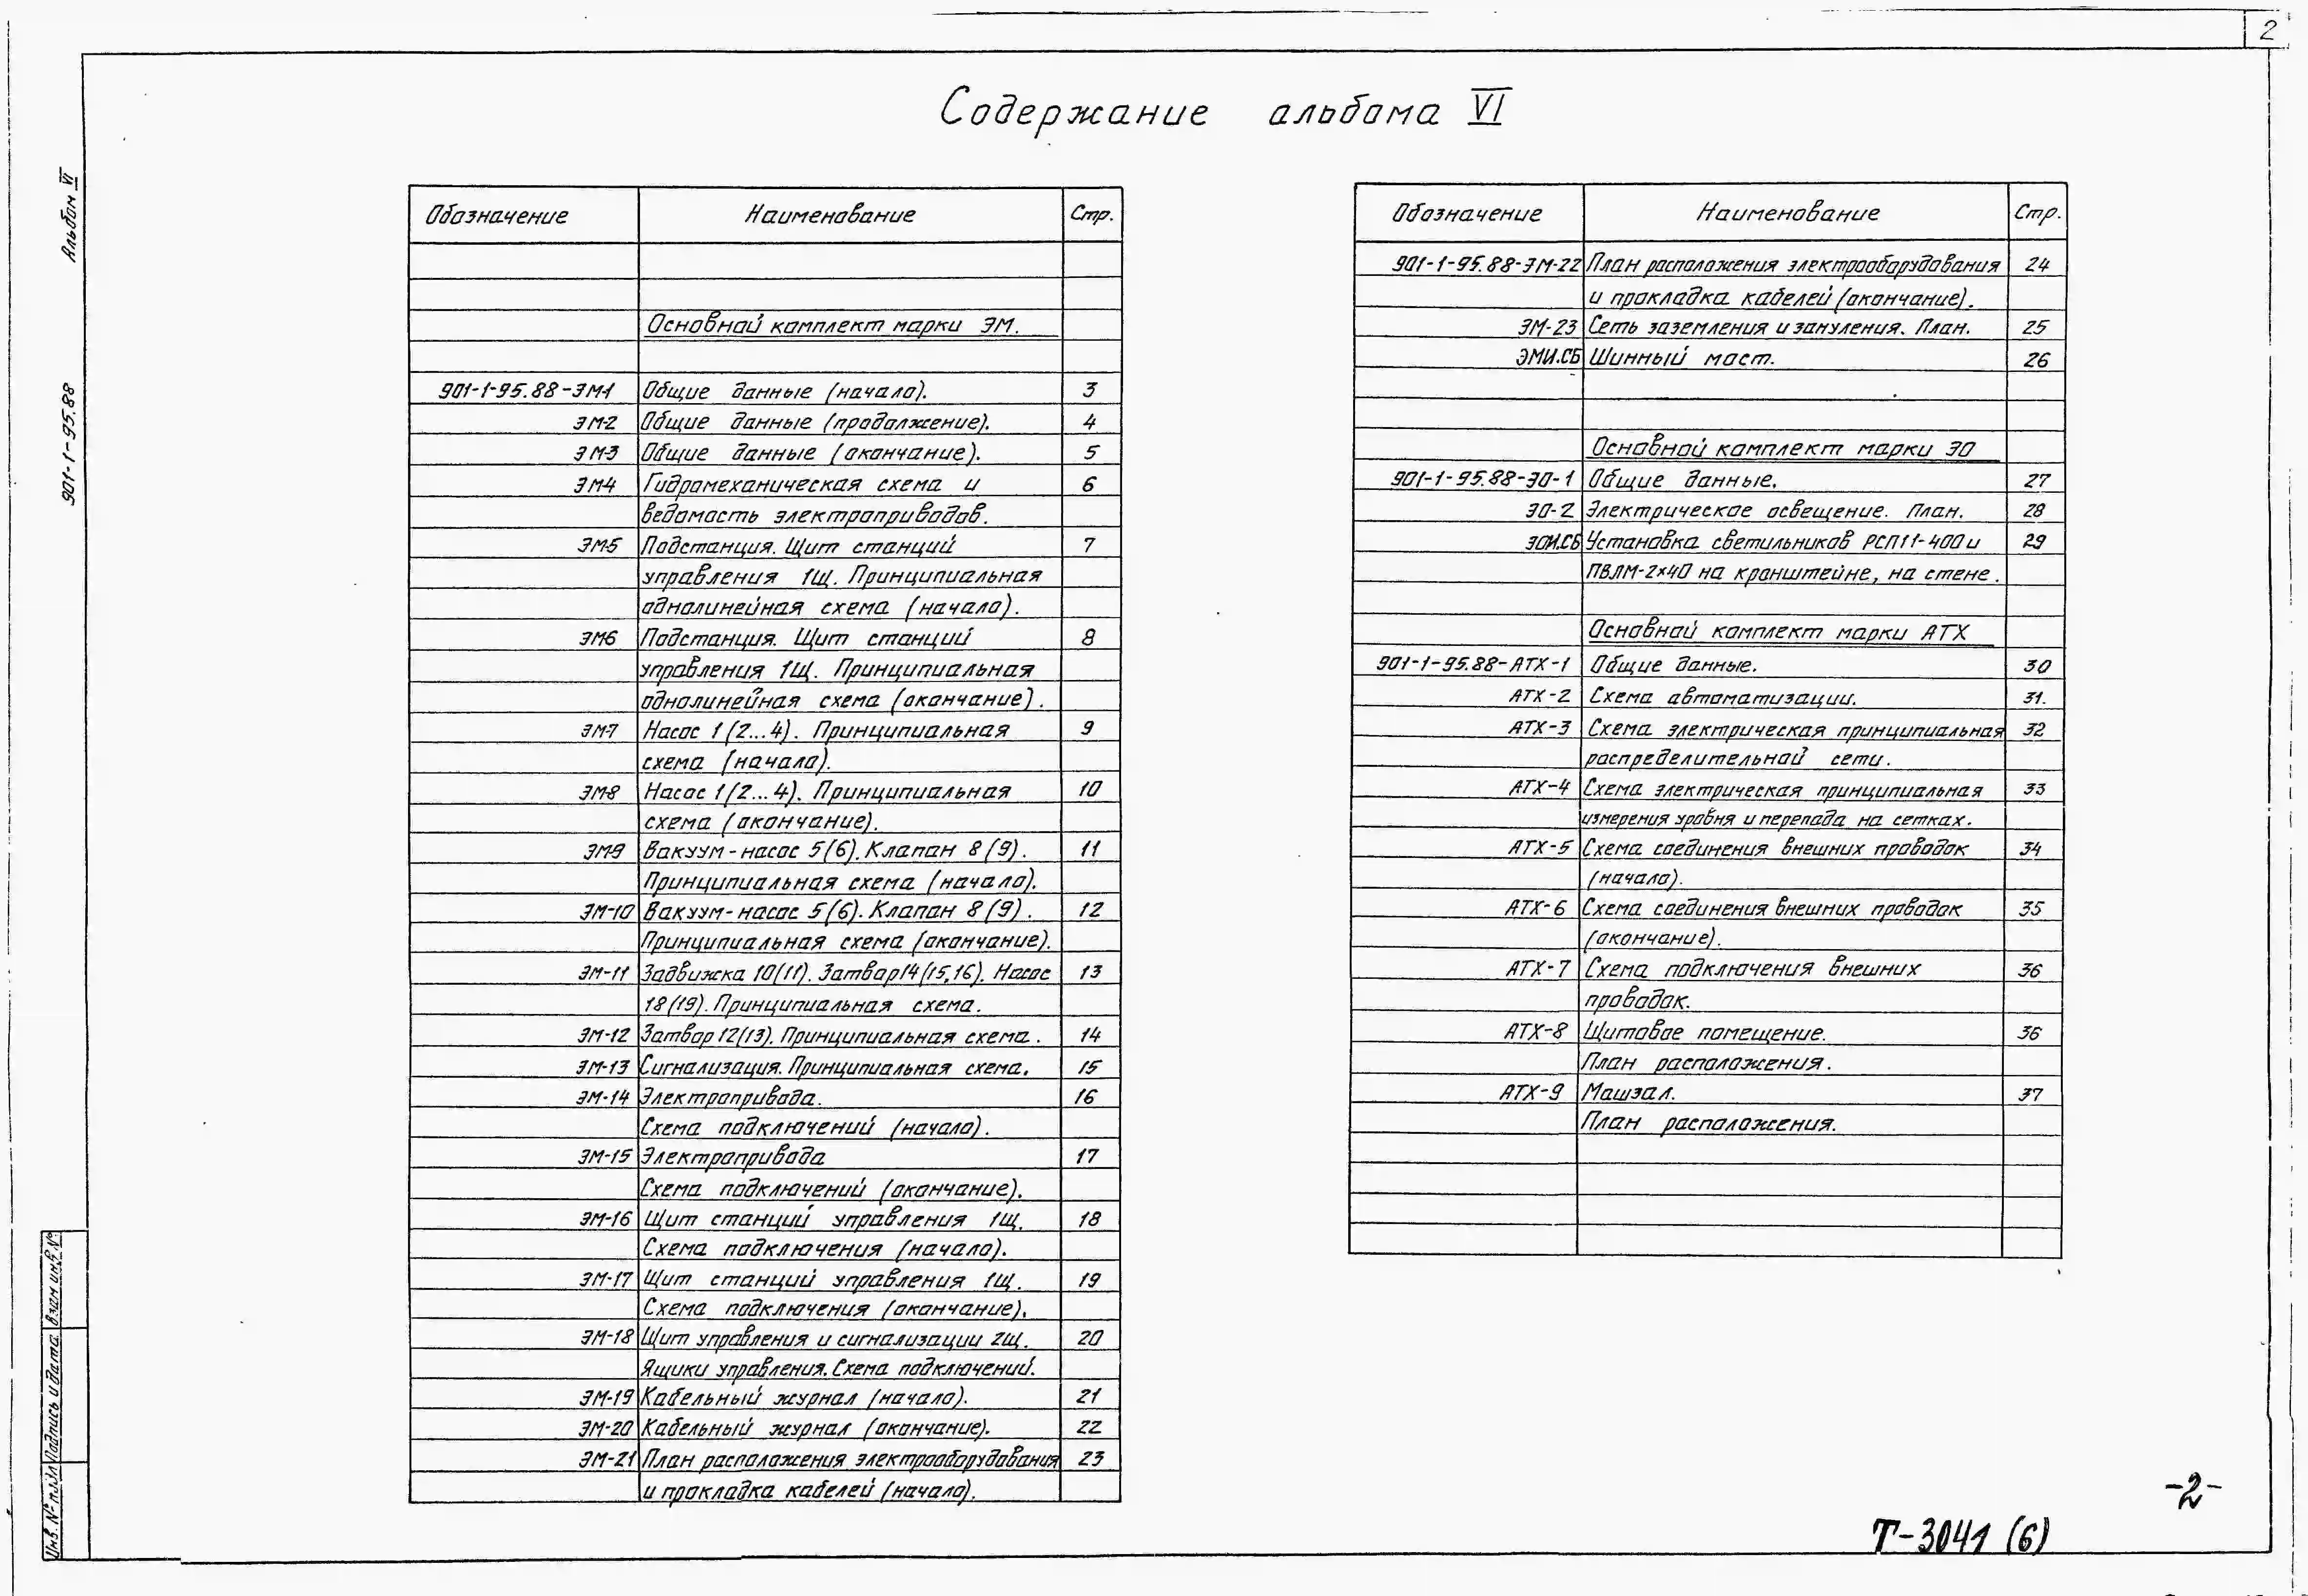 2
Содержание альбома VI
Альбом VI
901-1-95.88
Обозначение Наименование Стр.
Основной комплект марки ЭМ.
901-1-95.88-ЭМ-1 Общие данные (начало). 3
ЭМ-2 Общие данные (продолжение). 4
ЭМ-3 Общие данные (окончание). 5
ЭМ-4 Гидромеханическая схема и 6
ведомость электроприводов.
ЭМ-5 Подстанция. Щит станций 7
управления 1Щ. Принципиальная
однолинейная схема (начало).
ЭМ-6 Подстанция. Щит станций 8
управления 1Щ. Принципиальная
однолинейная схема (окончание).
ЭМ-7 Насос 1(2...4). Принципиальная 9
схема (начало).
ЭМ-8 Насос 1(2...4). Принципиальная 10
схема (окончание).
ЭМ-9 Вакуум-насос 5(6). Клапан 8(9). 11
Принципиальная схема (начало).
ЭМ-10 Вакуум-насос 5(6). Клапан 8(9). 12
Принципиальная схема (окончание).
ЭМ-11 Задвижка 10(11). Затвор 14(15,16). Насос 13
18(19). Принципиальная схема.
ЭМ-12 Затвор 12(13). Принципиальная схема. 14
ЭМ-13 Сигнализация. Принципиальная схема. 15
ЭМ-14 Электропривода. 16
Схема подключений (начало).
ЭМ-15 Электропривода 17
Схема подключений (окончание).
ЭМ-16 Щит станций управления 1Щ. 18
Схема подключения (начало).
ЭМ-17 Щит станций управления 1Щ. 19
Схема подключения (окончание).
ЭМ-18 Щит управления и сигнализации 2Щ. 20
Ящики управления. Схема подключений.
ЭМ-19 Кабельный журнал (начало). 21
ЭМ-20 Кабельный журнал (окончание). 22
ЭМ-21 План расположения электрооборудования 23
и прокладка кабелей (начало).
Обозначение Наименование Стр.
901-1-95.88-ЭМ-22 План расположения электрооборудования 24
и прокладка кабелей (окончание).
ЭМ-23 Сеть заземления и зануления. План. 25
ЭМИ.СБ Шинный мост. 26
Основной комплект марки ЭО
901-1-95.88-ЭО-1 Общие данные. 27
ЭО-2 Электрическое освещение. План. 28
ЭОИ.СБ Установка светильников РСП11-400 и 29
ПВЛМ-2×40 на кронштейне, на стене.
Основной комплект марки АТХ
901-1-95.88-АТХ-1 Общие данные. 30
АТХ-2 Схема автоматизации. 31.
АТХ-3 Схема электрическая принципиальная 32
распределительной сети.
АТХ-4 Схема электрическая принципиальная 33
измерения уровня и перепада на сетках.
АТХ-5 Схема соединения внешних проводок 34
(начало).
АТХ-6 Схема соединения внешних проводок 35
(окончание).
АТХ-7 Схема подключения внешних 36
проводок.
АТХ-8 Щитовое помещение. 36
План расположения.
АТХ-9 Машзал. 37
План расположения.
Инв. № подл Подпись и дата Взам инв №
-2-
Т-3041 (6)